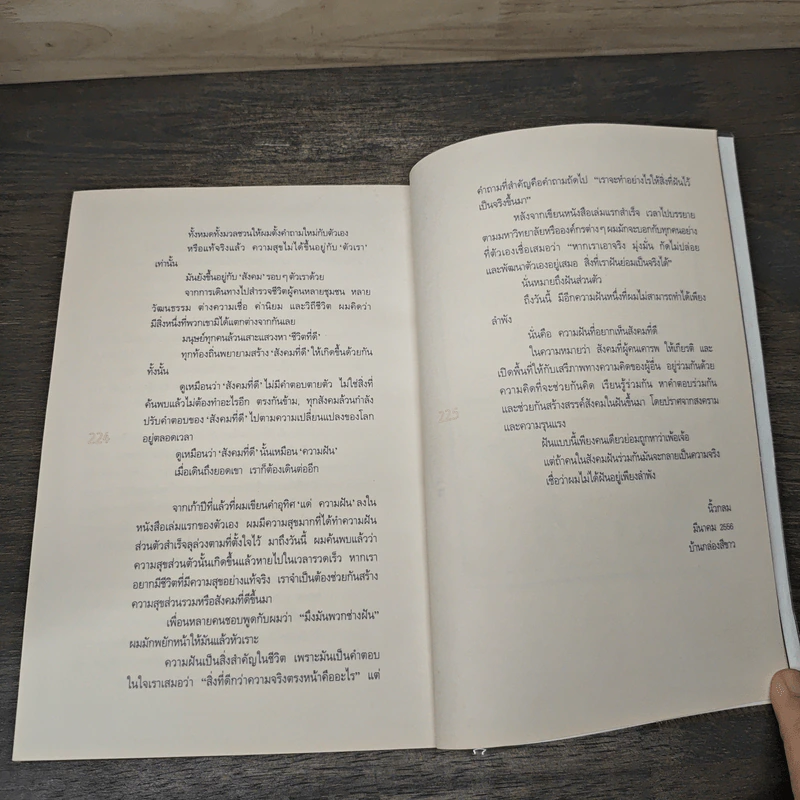 ทั้งหมดทั้งมวลชวนให้ผมตั้งคำถามใหม่กับตัวเอง
หรือแท้จริงแล้ว ความสุขไม่ได้ขึ้นอยู่กับ ‘ตัวเรา’
เท่านั้น
มันยังขึ้นอยู่กับ ‘สังคม’ รอบๆ ตัวเราด้วย
จากการเดินทางไปสำรวจชีวิตผู้คนหลายชุมชน หลาย
วัฒนธรรม ต่างความเชื่อ ค่านิยม และวิถีชีวิต ผมคิดว่า
มีสิ่งหนึ่งที่พวกเขามิได้แตกต่างจากกันเลย
มนุษย์ทุกคนล้วนเสาะแสวงหา ‘ชีวิตที่ดี’
ทุกท้องถิ่นพยายามสร้าง ‘สังคมที่ดี’ ให้เกิดขึ้นด้วยกัน
ทั้งนั้น
ดูเหมือนว่า ‘สังคมที่ดี’ ไม่มีคำตอบตายตัว ไม่ใช่สิ่งที่
ค้นพบแล้วไม่ต้องทำอะไรอีก ตรงกันข้าม, ทุกสังคมล้วนกำลัง
ปรับคำตอบของ ‘สังคมที่ดี’ ไปตามความเปลี่ยนแปลงของโลก
อยู่ตลอดเวลา
ดูเหมือนว่า ‘สังคมที่ดี’ นั้นเหมือน ‘ความฝัน’
เมื่อเดินถึงยอดเขา เราก็ต้องเดินต่ออีก
จากเก้าปีที่แล้วที่ผมเขียนคำอุทิศ ‘แด่ ความฝัน’ ลงใน
หนังสือเล่มแรกของตัวเอง ผมมีความสุขมากที่ได้ทำความฝัน
ส่วนตัวสำเร็จลุล่วงตามที่ตั้งใจไว้ มาถึงวันนี้ ผมค้นพบแล้วว่า
ความสุขส่วนตัวนั้นเกิดขึ้นแล้วหายไปในเวลารวดเร็ว หากเรา
อยากมีชีวิตที่มีความสุขอย่างแท้จริง เราจำเป็นต้องช่วยกันสร้าง
ความสุขส่วนรวมหรือสังคมที่ดีขึ้นมา
เพื่อนหลายคนชอบพูดกับผมว่า “มึงมันพวกช่างฝัน”
ผมมักพยักหน้าให้มันแล้วหัวเราะ
ความฝันเป็นสิ่งสำคัญในชีวิต เพราะมันเป็นคำตอบ
ในใจเราเสมอว่า “สิ่งที่ดีกว่าความจริงตรงหน้าคืออะไร” แต่
224
คำถามที่สำคัญคือคำถามถัดไป “เราจะทำอย่างไรให้สิ่งที่ฝันไว้
เป็นจริงขึ้นมา”
หลังจากเขียนหนังสือเล่มแรกสำเร็จ เวลาไปบรรยาย
ตามมหาวิทยาลัยหรือองค์กรต่างๆ ผมมักจะบอกกับทุกคนอย่าง
ที่ตัวเองเชื่อเสมอว่า “หากเราเอาจริง มุ่งมั่น กัดไม่ปล่อย
และพัฒนาตัวเองอยู่เสมอ สิ่งที่เราฝันย่อมเป็นจริงได้”
นั่นหมายถึงฝันส่วนตัว
ถึงวันนี้ มีอีกความฝันหนึ่งที่ผมไม่สามารถทำได้เพียง
ลำพัง
นั่นคือ ความฝันที่อยากเห็นสังคมที่ดี
ในความหมายว่า สังคมที่ผู้คนเคารพ ให้เกียรติ และ
เปิดพื้นที่ให้กับเสรีภาพทางความคิดของผู้อื่น อยู่ร่วมกันด้วย
ความคิดที่จะช่วยกันคิด เรียนรู้ร่วมกัน หาคำตอบร่วมกัน
และช่วยกันสร้างสรรค์สังคมในฝันขึ้นมา โดยปราศจากสงคราม
และความรุนแรง
ฝันแบบนี้เพียงคนเดียวย่อมถูกหาว่าเพ้อเจ้อ
แต่ถ้าคนในสังคมฝันร่วมกันมันจะกลายเป็นความจริง
เชื่อว่าผมไม่ได้ฝันอยู่เพียงลำพัง
225
นิ้วกลม
มีนาคม 2556
บ้านกล่องสีขาว